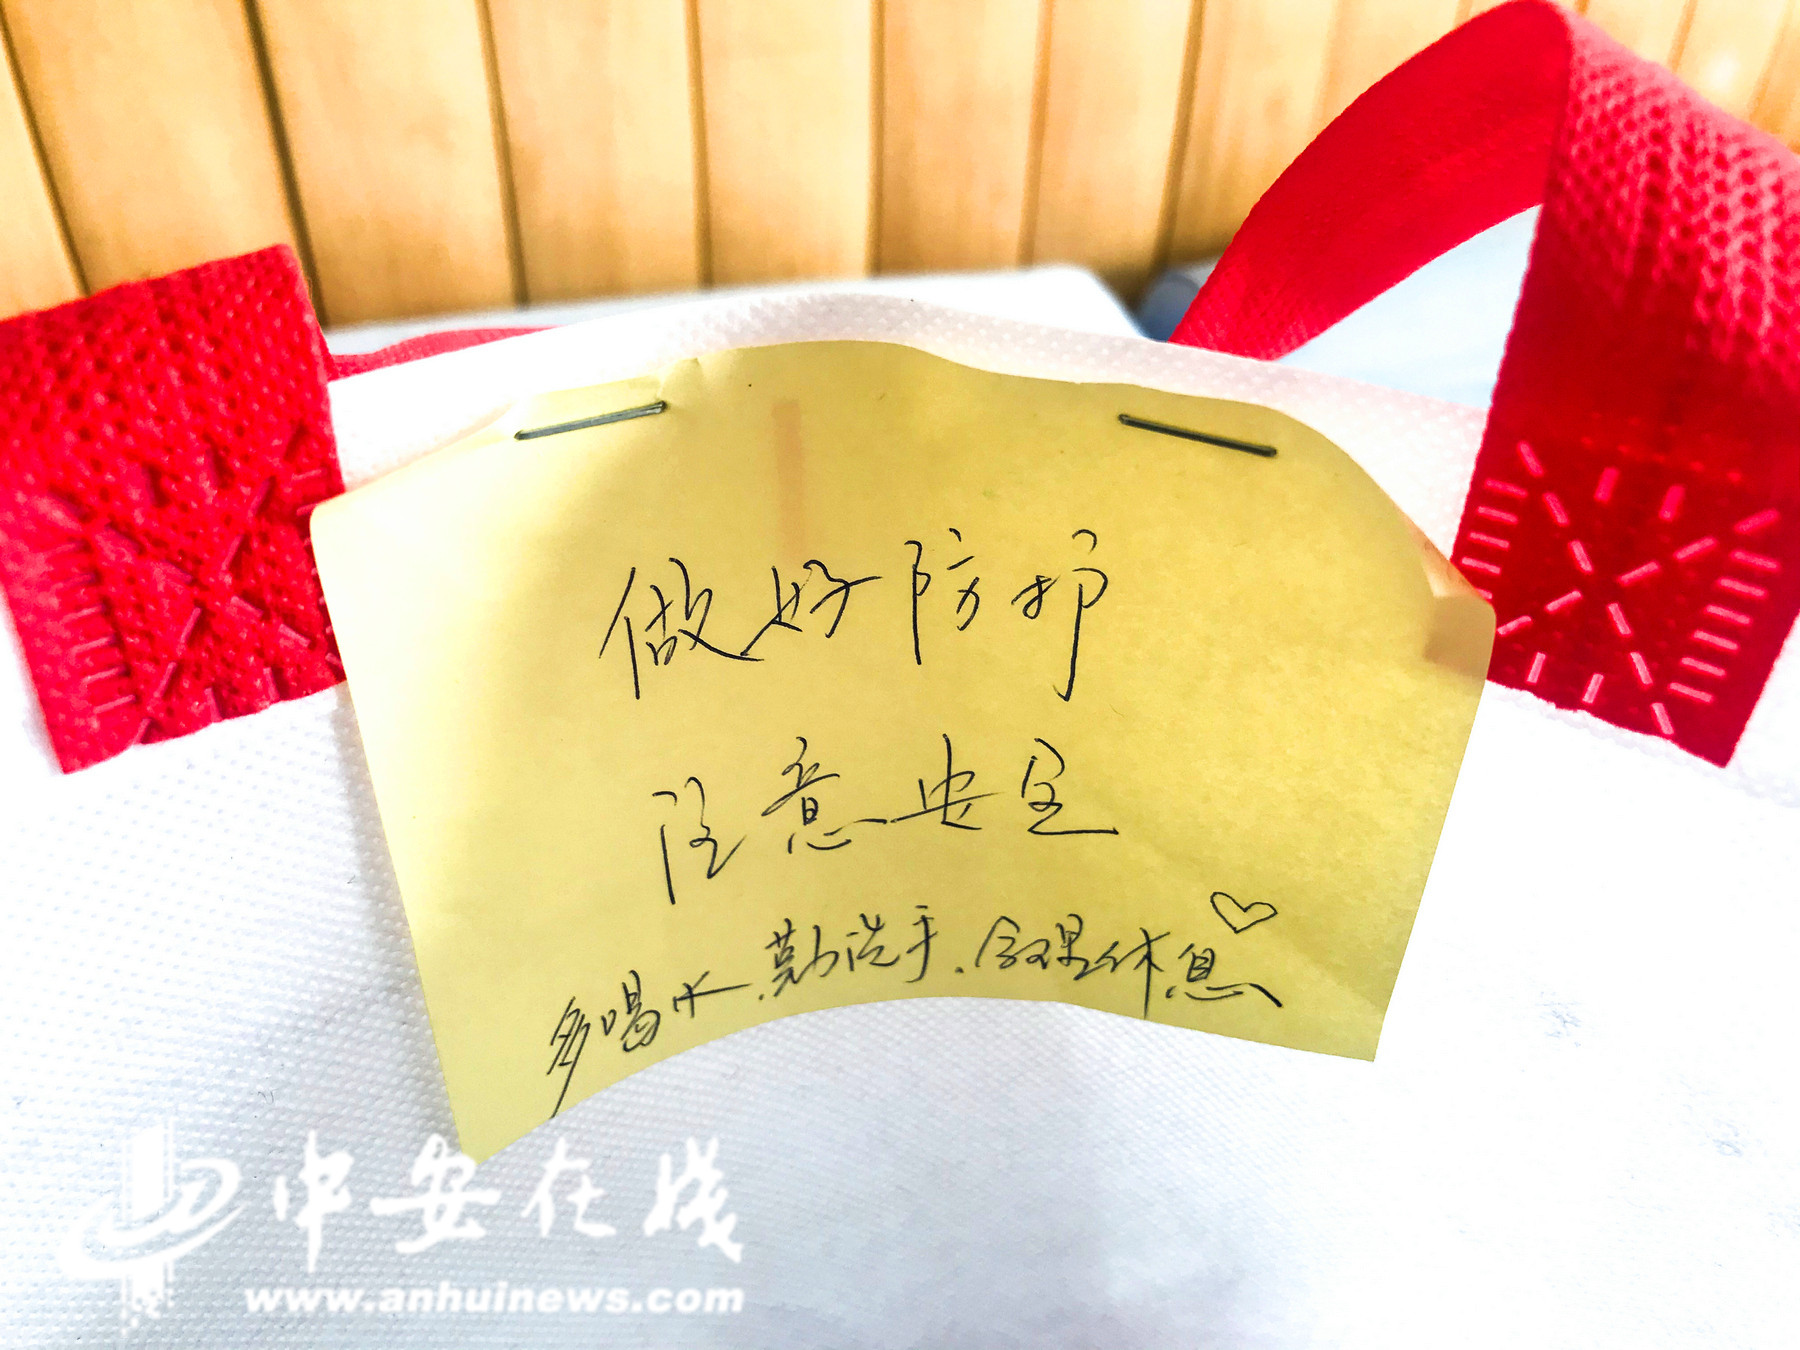 做好防护
注意安全
多喝水.勤洗手.合理休息♡
中安在线
www.anhuinews.com